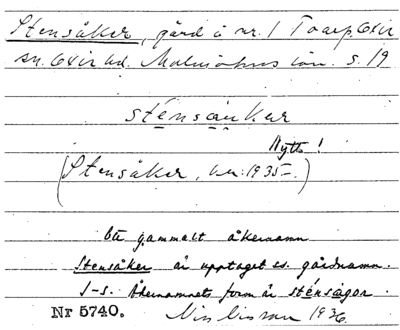 Stensåker, gård å nr. 1 Toarp, Oxie
sn. Oxie hd. Malmöhus län. s. 19
sténsåukar
Nytt!
(Stensåker, ker: 1935–.)
Ett gammalt åkernamn
Stensåker är upptaget ss. gårdnamn.
J-s. Åkernamnets form är sténsågor.
Nr 5740. 1936.